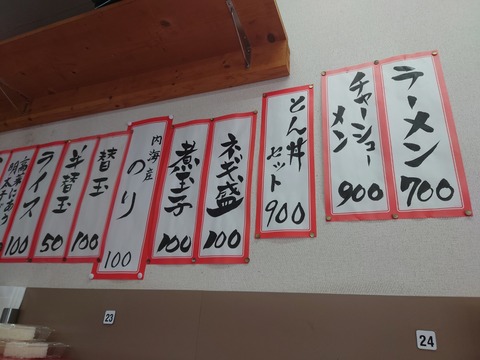 ラーメン
700
チャーシュー
メン
900
とん丼
セット
900
ネギ盛
100
煮玉子
100
内海産
のり
100
替玉
100
半替玉
50
ライス
100
明太子
23
24